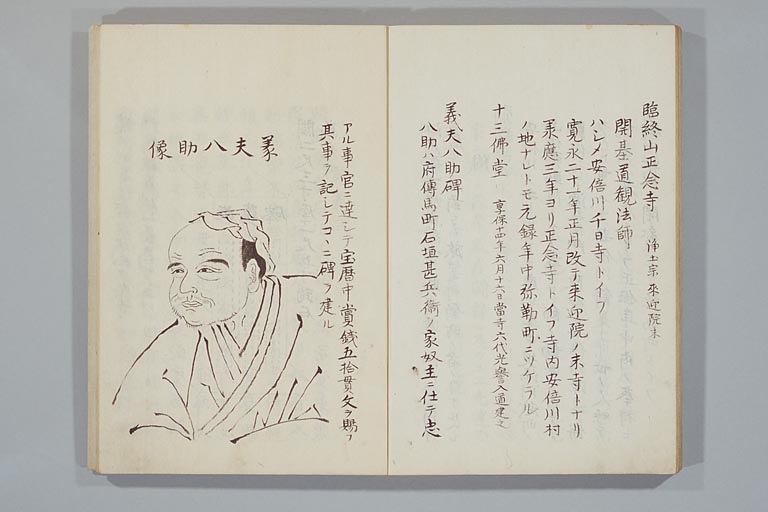 臨終山正念寺 浄土宗 来迎院末
開基道観法師
ハシメ安倍川千日寺トイフ
寛永二十一年正月改テ来迎院ノ末寺トナリ
承應三年ヨリ正念寺トイフ寺内安倍川村
ノ地ナレトモ元録年中弥勒町ニツケラル
十三佛堂 享保十四年六月十六日當寺六代光譽入道建之
義夫八助碑
八助ハ府傳馬町石垣甚兵衛ノ家奴主ニ仕テ忠
アル事官ニ達シテ宝暦中賞銭五拾貫文ヲ賜フ
其事ヲ記シテコヽニ碑ヲ建ル
義夫八助像